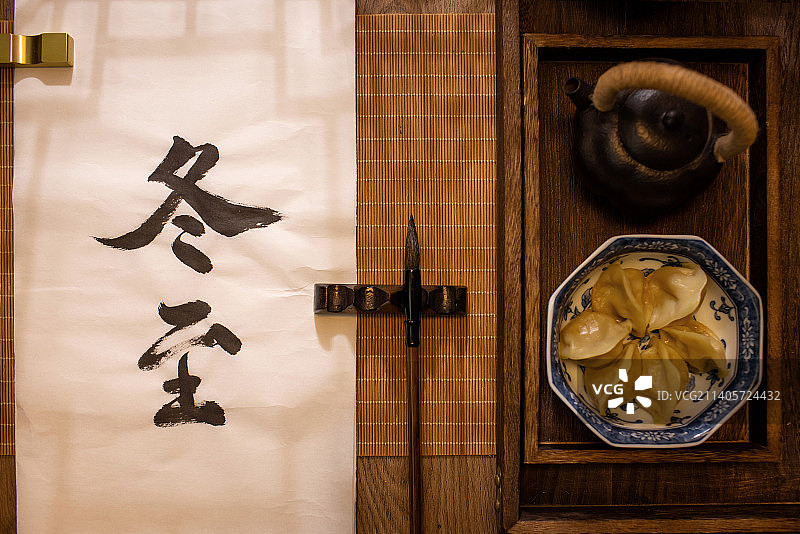 冬
至
VCG
ID: VCG211405724432